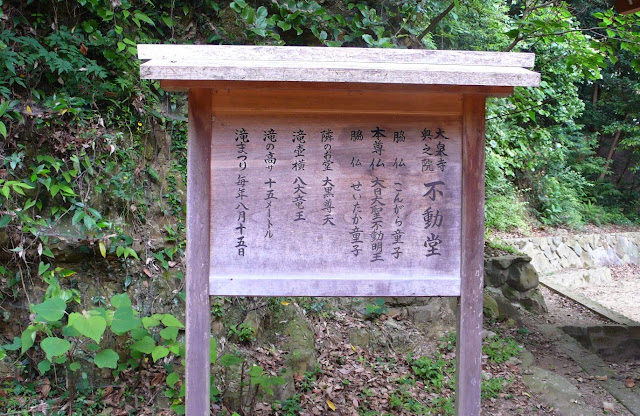 大泉寺
奥之院
不動堂
脇仏 こんがら童子
本尊仏 大日大聖不動明王
脇仏 せいたか童子
隣のお堂 大黒尊天
滝壺横 八大竜王
滝の高サ 十五メートル
滝まつり 毎年八月十五日